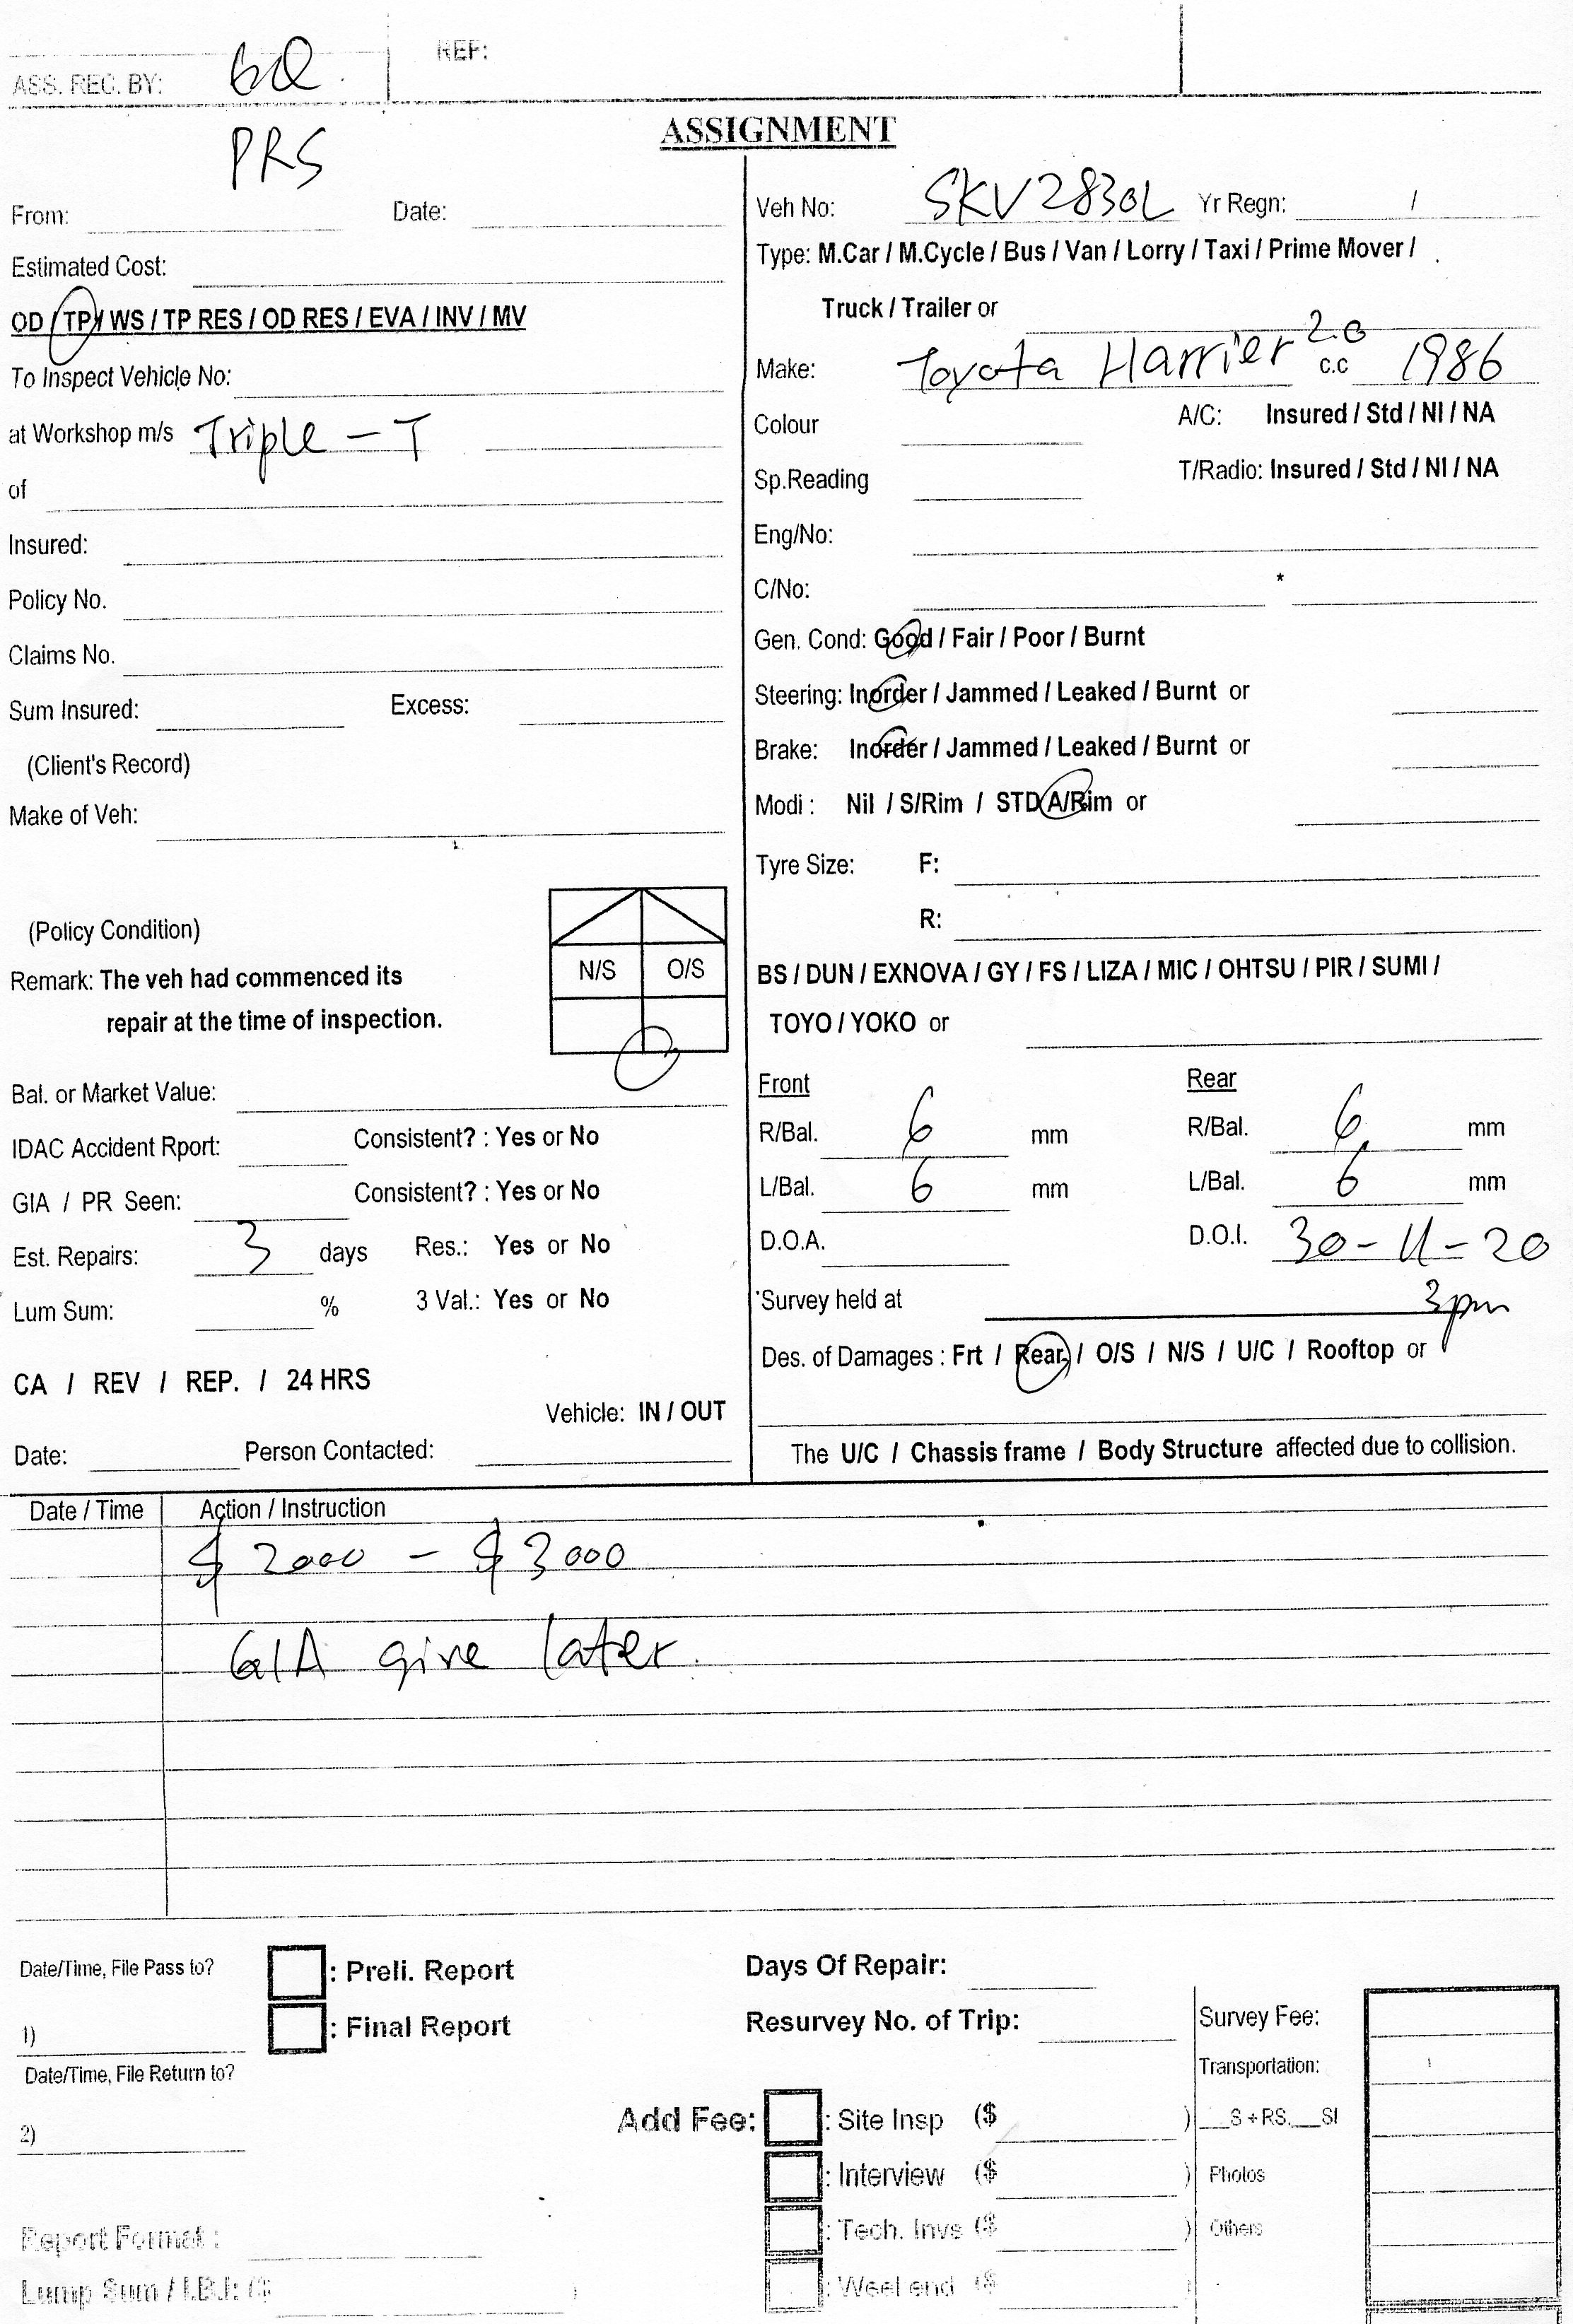 REF:
ASS. REC. BY: GQ
PRS
ASSIGNMENT
From: Date:
Estimated Cost:
OD / TP / WS / TP RES / OD RES / EVA / INV / MV
To Inspect Vehicle No:
at Workshop m/s Triple - T
of
Insured:
Policy No.
Claims No.
Sum Insured: Excess:
(Client's Record)
Make of Veh:
(Policy Condition)
N/S O/S
Remark: The veh had commenced its
repair at the time of inspection.
Bal. or Market Value:
IDAC Accident Rport: Consistent? : Yes or No
GIA / PR Seen: Consistent? : Yes or No
Est. Repairs: 3 days Res.: Yes or No
Lum Sum: % 3 Val.: Yes or No
CA / REV / REP. / 24 HRS
Vehicle: IN / OUT
Date: Person Contacted:
Veh No: SKV2830L Yr Regn: /
Type: M.Car / M.Cycle / Bus / Van / Lorry / Taxi / Prime Mover /
Truck / Trailer or
Make: Toyota Harrier 2.0 c.c 1986
Colour A/C: Insured / Std / NI / NA
Sp.Reading T/Radio: Insured / Std / NI / NA
Eng/No:
C/No: *
Gen. Cond: Good / Fair / Poor / Burnt
Steering: Inorder / Jammed / Leaked / Burnt or
Brake: Inorder / Jammed / Leaked / Burnt or
Modi : Nil / S/Rim / STD A/Rim or
Tyre Size: F:
R:
BS / DUN / EXNOVA / GY / FS / LIZA / MIC / OHTSU / PIR / SUMI /
TOYO / YOKO or
Front Rear
R/Bal. 6 mm R/Bal. 6 mm
L/Bal. 6 mm L/Bal. 6 mm
D.O.A. D.O.I. 30-11-20
Survey held at 3pm
Des. of Damages : Frt / Rear / O/S / N/S / U/C / Rooftop or
The U/C / Chassis frame / Body Structure affected due to collision.
Date / Time Action / Instruction
$2000 - $3000
GIA give later.
Date/Time, File Pass to? : Preli. Report Days Of Repair:
1) : Final Report Resurvey No. of Trip:
Date/Time, File Return to?
2)
Add Fee: : Site Insp ($ )
: Interview ($ )
: Tech. Invs ($ )
: Weekend ($
Survey Fee:
Transportation:
__S + RS.__SI
Photos
Others
Report Format :
Lump Sum / I.B.I: ($ )